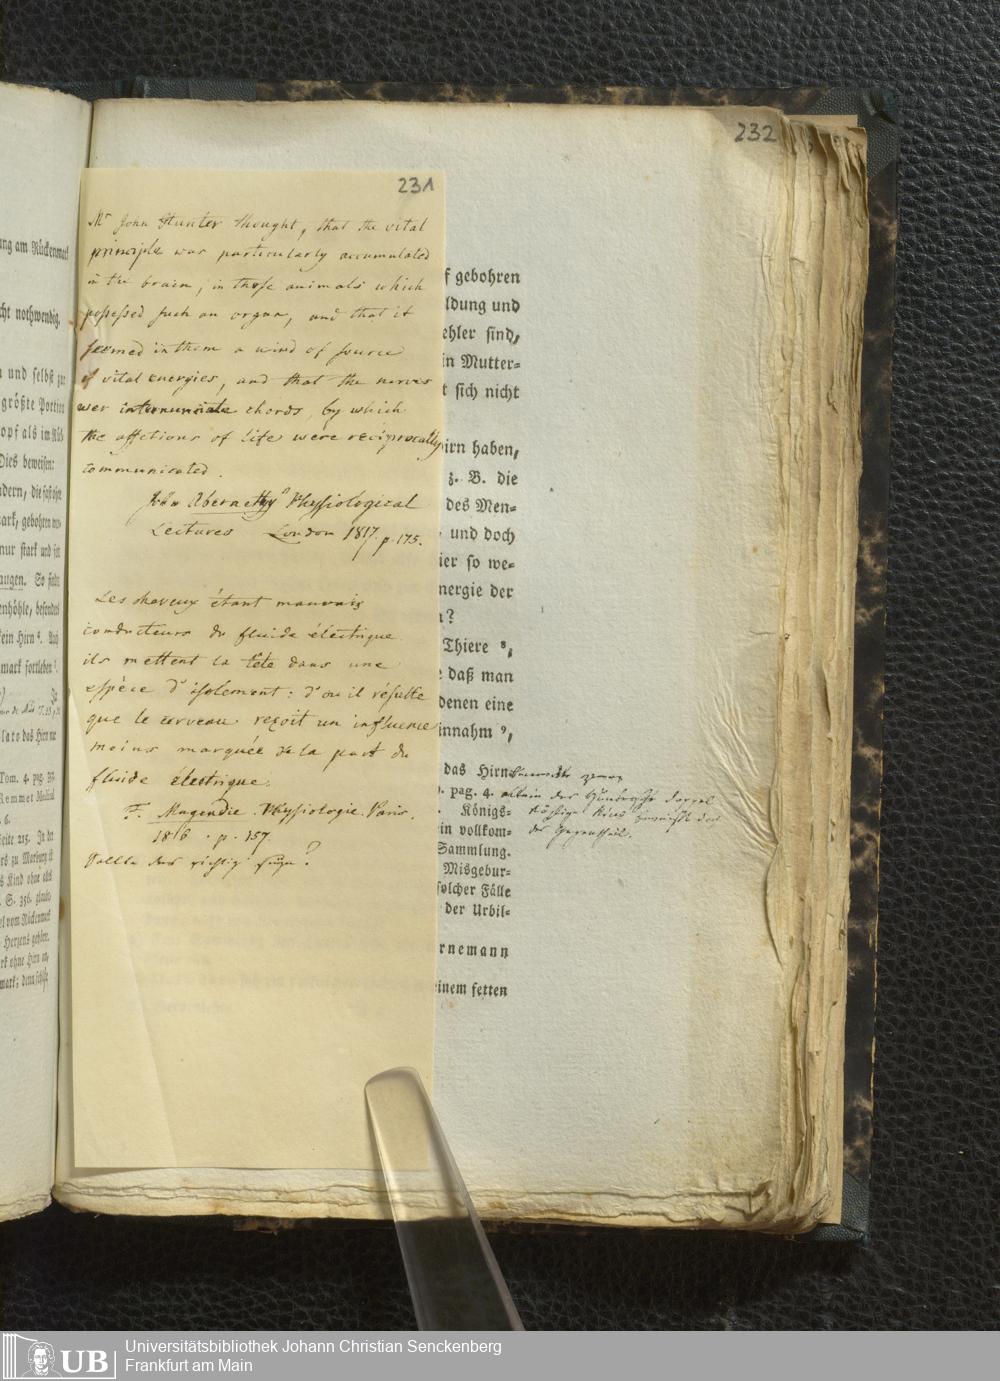 232
231
Mr John Hunter thought, that the vital
principle was particularly accumulated
in the brain, in those animals which
possessed such an organ, and that it
seemed in them a kind of source
of vital energies, and that the nerves
wer internunciate chords, by which
the affections of life were reciprocally
communicated.
John Abernethy's Physiological
Lectures London 1817. p. 175.
Les cheveux étant mauvais
conducteurs du fluide électrique
ils mettent la tête dans une
espèce d'isolement: d'où il résulte
que le cerveau reçoit un influence
moins marquée de la part du
fluide électrique.
F. Magendie Physiologie. Paris.
1816. p. 157.
Sollte das richtig seyn?
ung am Rückenmark
cht nothwendig,
n und selbst zur
größte Portion
opf als im Rück-
Dies beweisen:
ndern, die fast ohne
ark, gebohren wer-
nur stark und fett
augen. So findet
enhöhle, besonders
ein Hirn
mark fortleben
lato das Hirn
Tom. 4. pag.
Rommet
6.
eite 215. In der
zu Marburg ist
Kind ohne alles
S. 356. glaubt
el vom Rückenmark
Herzens gehöre.
rk ohne Hirn
mark; denn
f gebohren
ldung und
ehler sind,
in Mutter=
t sich nicht
irn haben,
z. B. die
des Men=
und doch
ier so we=
nergie der
n?
Thiere 8,
e daß man
denen eine
innahm 9,
das Hirn
). pag. 4. allein der doppel
Königs=
in vollkom= das Gegentheil.
Sammlung.
Misgebur=
solcher Fälle
der Urbil=
rnemann
inem fetten
UB
Universitätsbibliothek Johann Christian Senckenberg
Frankfurt am Main